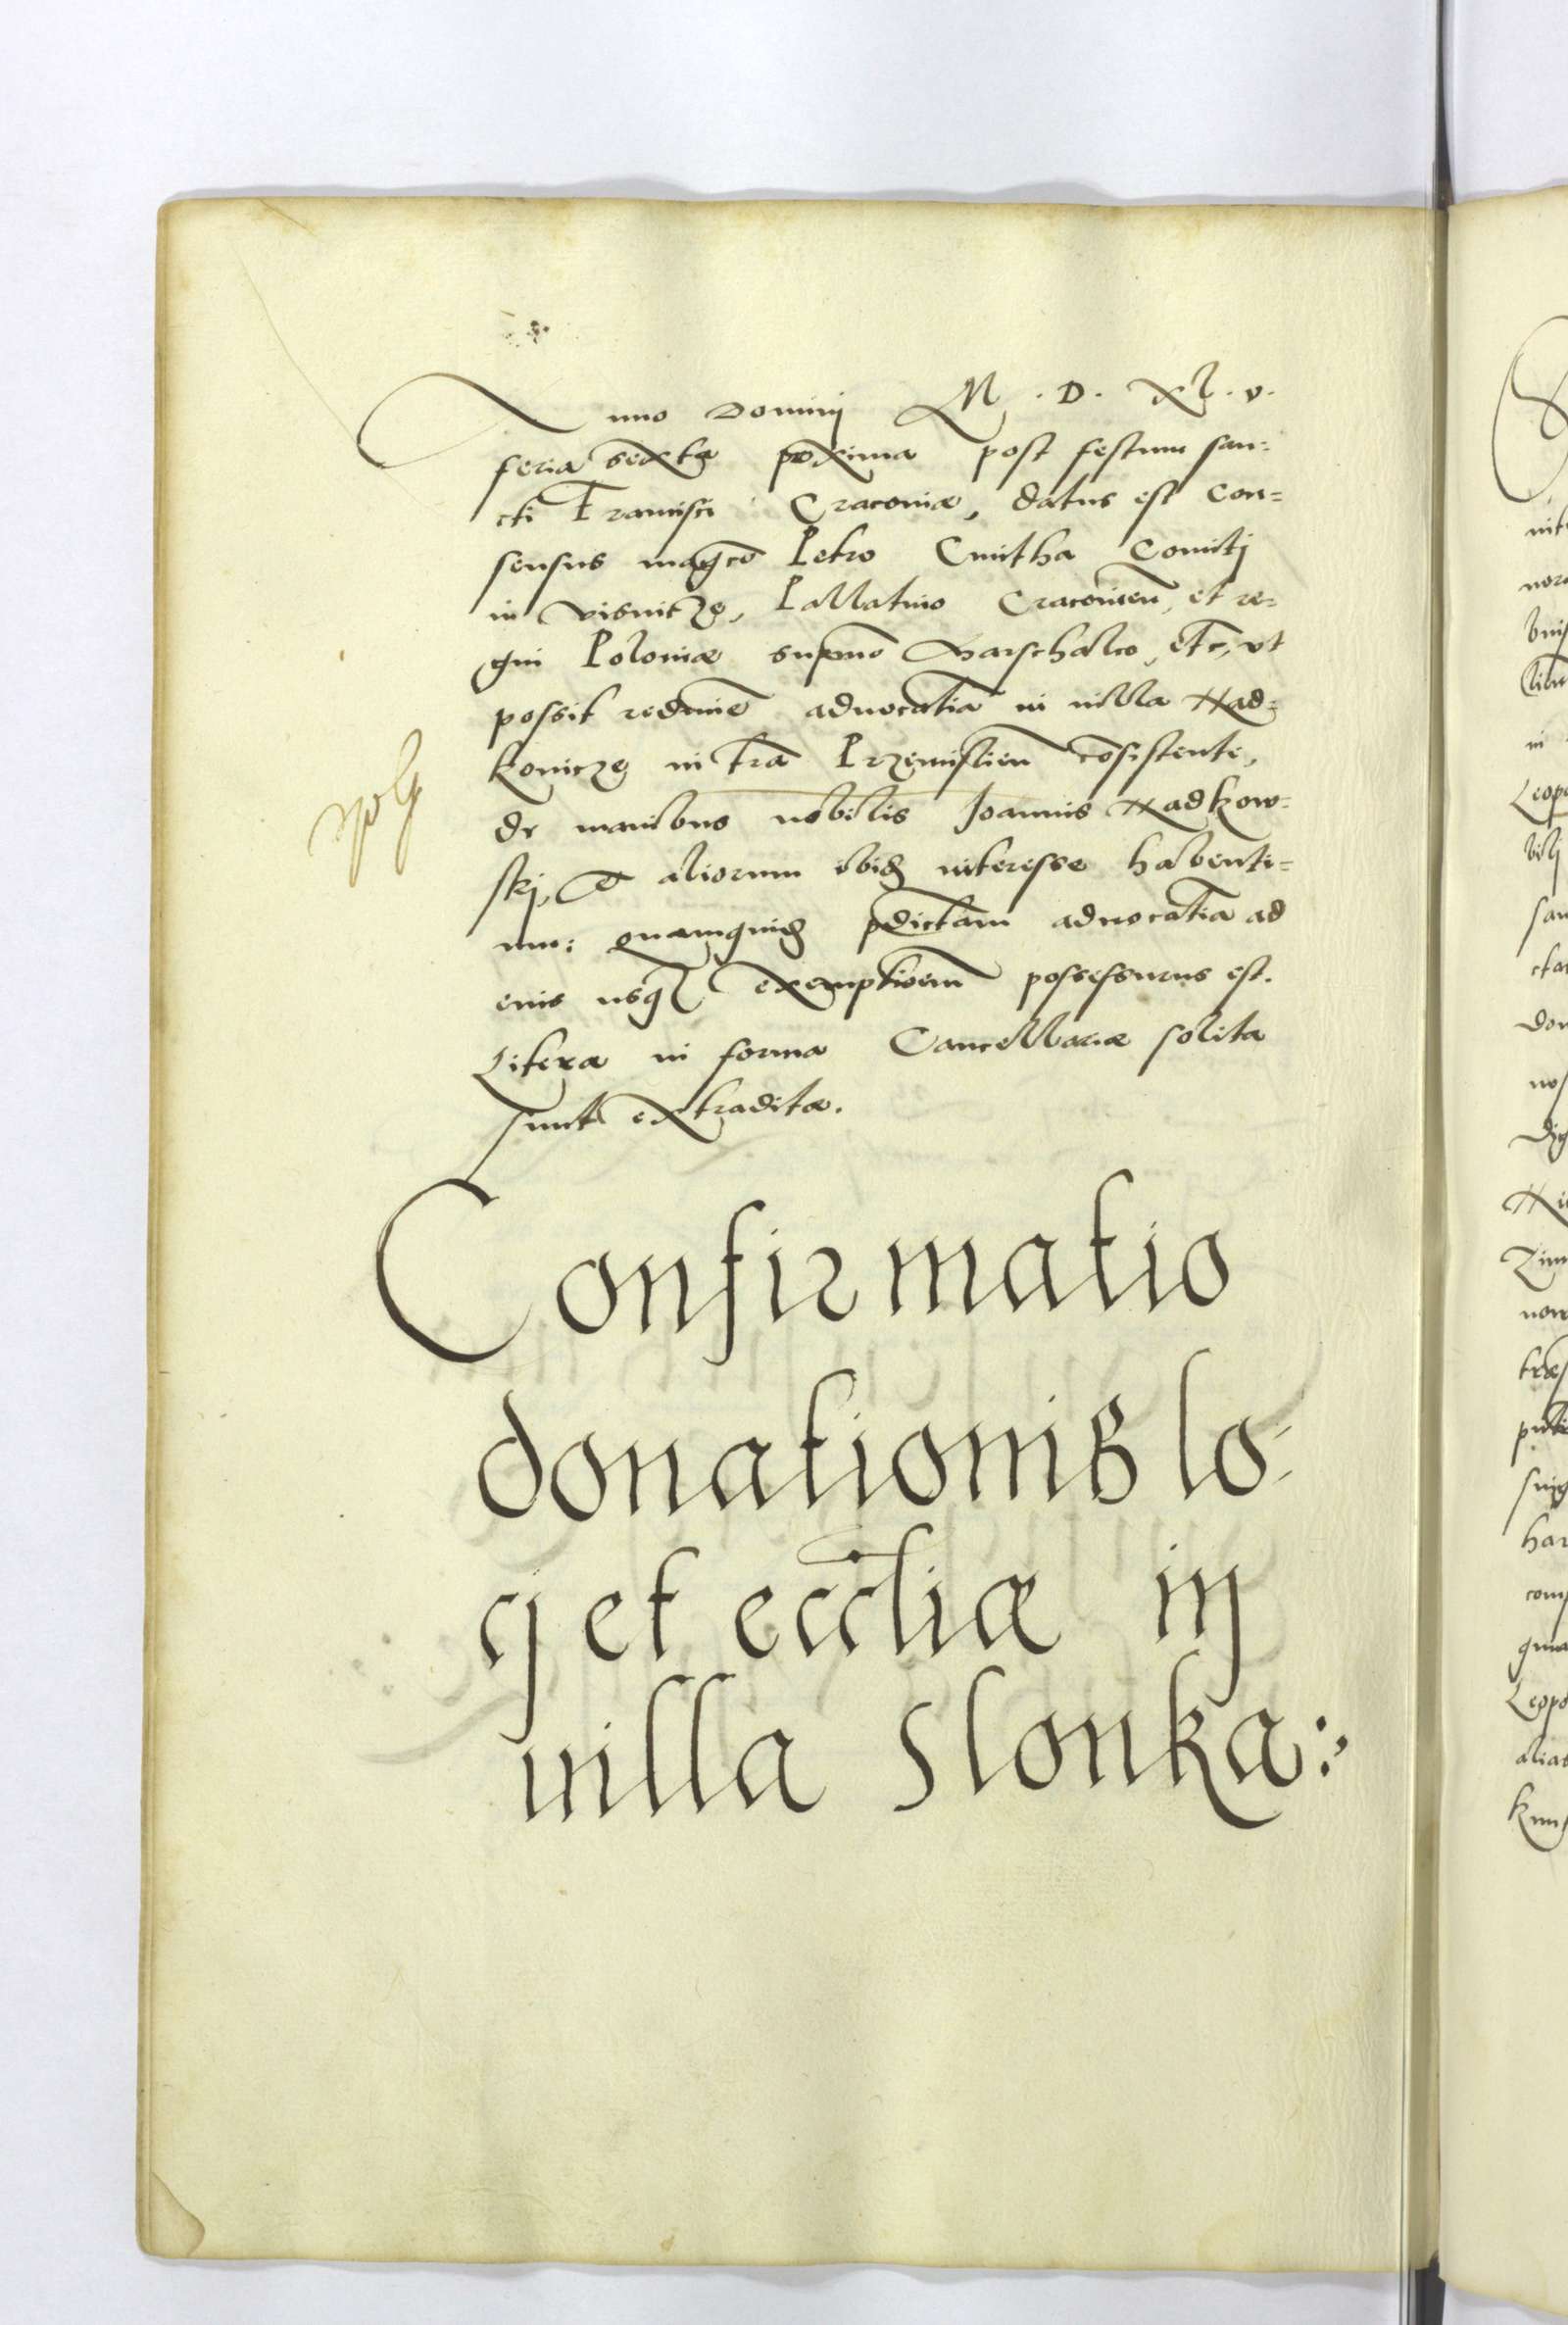 Anno Dominj M . D . Xl . v .
feria sexta proxima post festum san=
cti Francisci Cracoviæ, datus est con=
sensus magco Petro Cmitha Comitj
in Visnicze, Pallatino Cracovien, et re=
gni Poloniæ supmo Marschalco, etc, vt
possit redimē advocatiā in villa Rad=
konicze in trā Przemislien cōsistente,
de manibus nobilis Joannis Radkow=
skj, et aliorum ibidē interesse habenti=
um: quamquidē pdictam advocatiā ad
eius usq exemptionem possessurus est.
Literæ in forma Cancellariæ solita
sunt extraditæ.
Confirmatio
donationis lo=
cj et eccliæ in
villa Slonka: